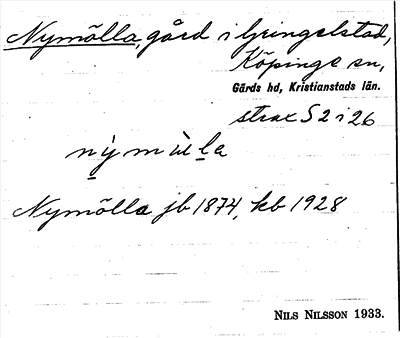 Nymölla, gård i Gringelstad,
Köpinge sn,
Gärds hd, Kristianstads län.
strax S 2 i 26
nỳmùla
Nymölla jb 1874, kb 1928
NILS NILSSON 1933.